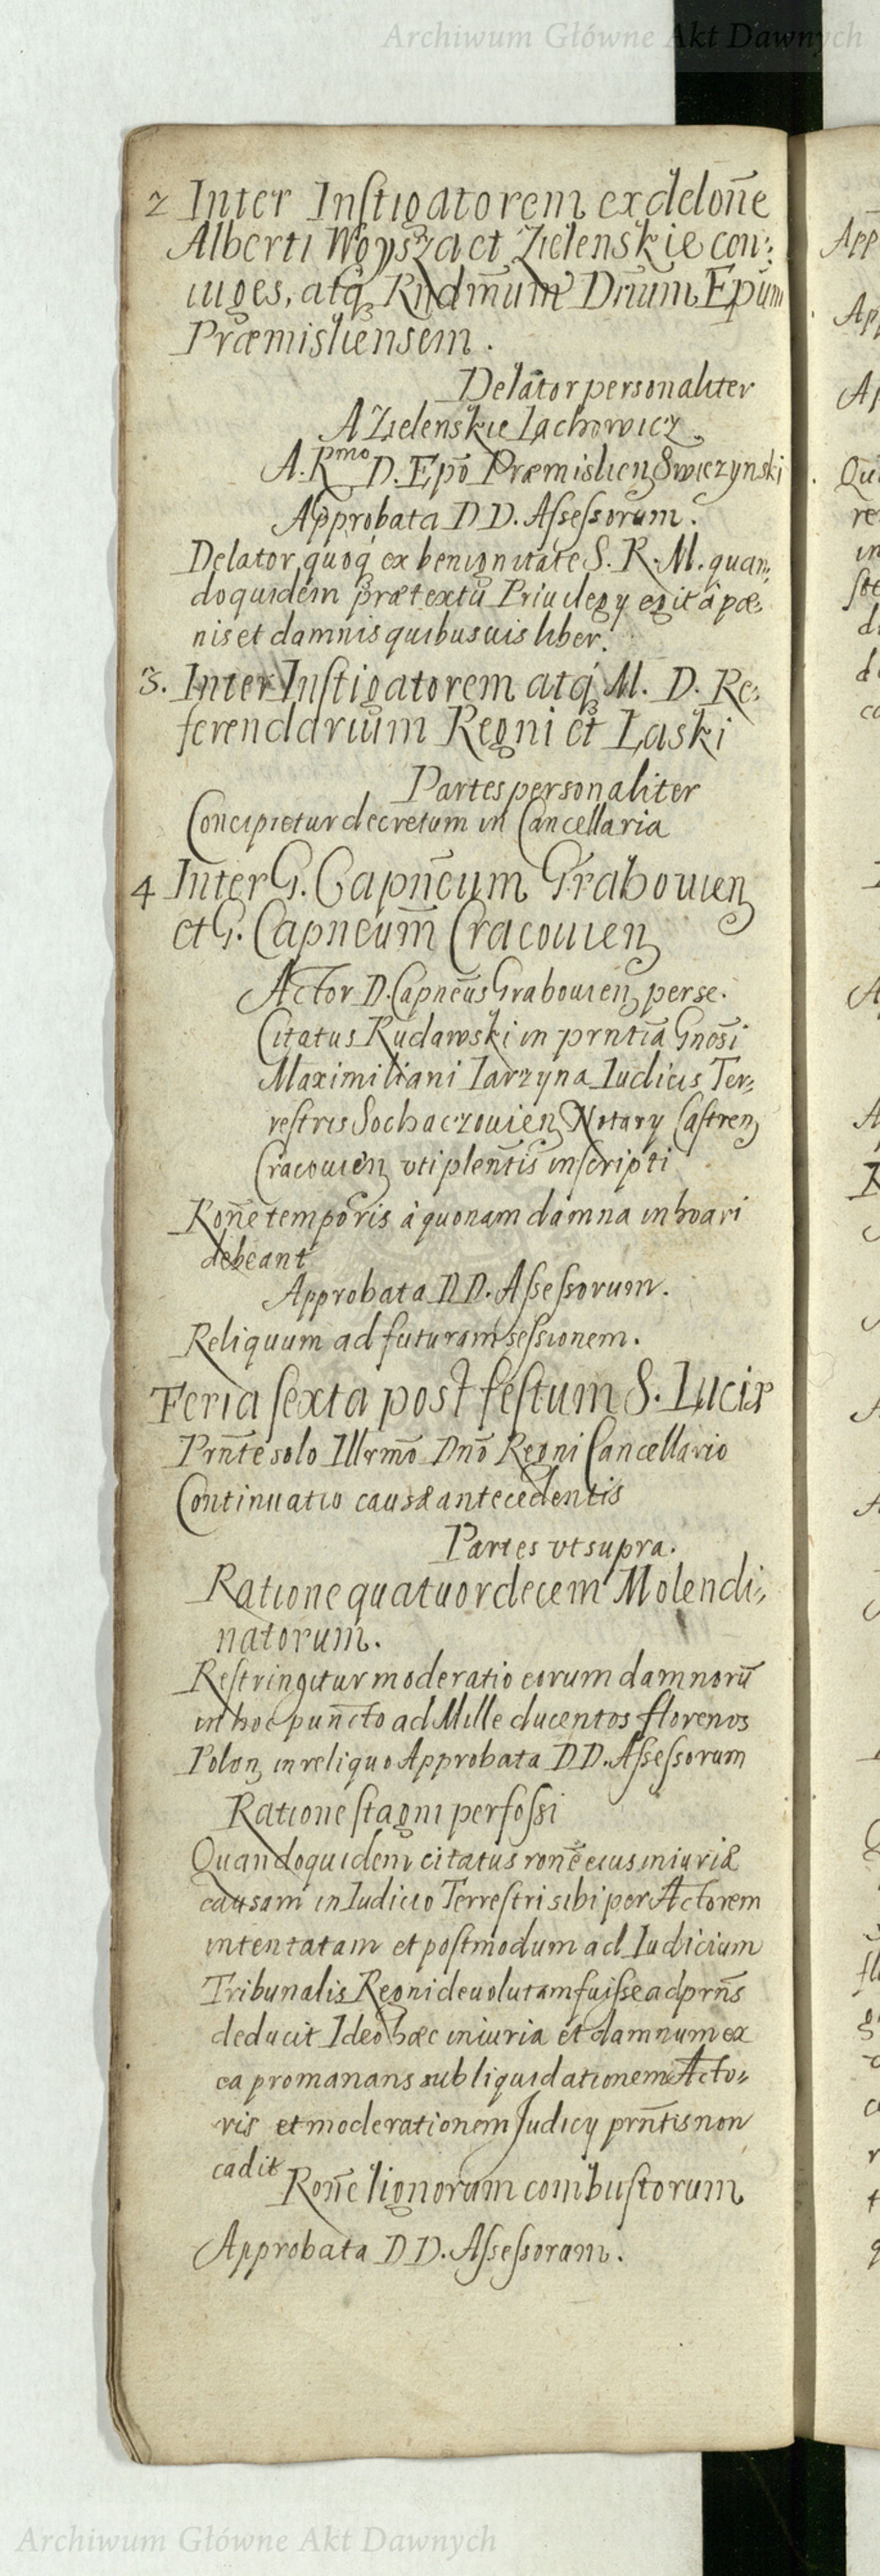 Archiwum Główne Akt Dawnych
2 Inter Instigatorem ex deloñe
Alberti Woysza et Zielenskie con:
iuges, atq́ Rndm̃um Dñum Epũm
Præmisliensem.
Delator personaliter
A Zielenskie Iachowicz.
A. Rmo D. Epõ Præmislien Swiezynski
Approbata DD. Assessorum.
Delator quoq́ ex benignitate S. R. M. quan:
doquidem prætextu Priuilegy egit â pæ:
nis et damnis quibusuis liber.
3. Inter Instigatorem atq́ M. D. Re:
ferendarium Regni et Laski
Partes personaliter
Concipietur decretum in Cancellaria
4 Inter G. Capñeum Grabouien
et G. Capneum̃ Cracouien
Actor D. Capneũs Grabouien per se.
Citatus Rudawski in prñtia Gnõsi
Maximiliani Iarzyna Iudicis Ter:
restris Sochaczouien Notary Castren
Cracouien vti plentĩs inscripti
Roñe temporis à quo nam damna inhoari
debeant
Approbata DD. Assessorum.
Reliquum ad futuram sessionem.
Feria sexta post festum S. Luciæ
Prñte solo Illrmõ Dnõ Regni Cancellario
Continuatio causæ antecedentis
Partes vt supra.
Ratione quatuordecem Molendi:
natorum.
Restringitur moderatio eorum damnorũ
in hoc puncto ad Mille ducentos florenos
Polon in reliquo Approbata DD. Assessorum
Ratione stagni perfossi
Quandoquidem citatus roñe eius iniuriæ
causam in Iudicio Terrestri sibi per Actorem
intentatam et postmodum ad Iudicium
Tribunalis Regni deuolutam fuisse ad prñs
deducit Ideo hæc iniuria et damnum ex
ea promanans sub liquidationem Acto:
ris et moderationem Judicy prñtis non
cadit
Roñe lignorum combustorum
Approbata DD. Assessorum.
Archiwum Główne Akt Dawnych